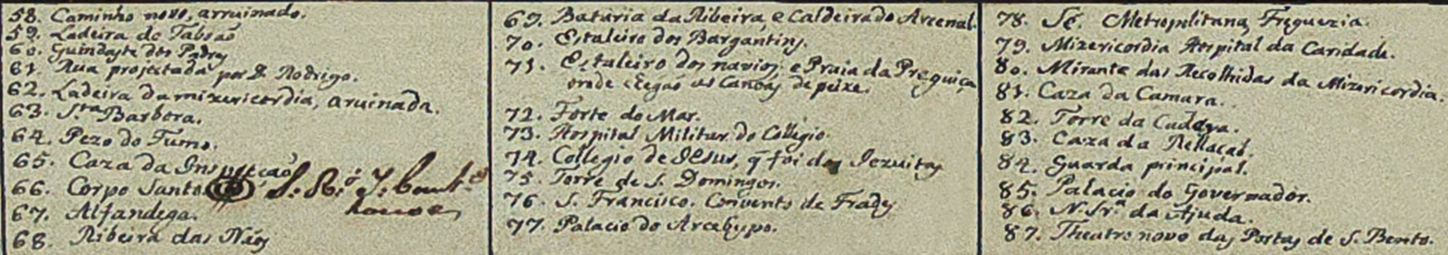 58. Caminho novo, arruinado.
59. Ladeira do Taboaõ
60. Guindaste dos Padres
61. Rua projectada por D. Rodrigo.
62. Ladeira da mizericordia, aruinada.
63. S.ta Barbora.
64. Pezo do Fumo.
65. Caza da Inspecçaõ
66. Corpo Santo
67. Alfandega.
68. Ribeira das Náos
69. Bataria da Ribeira, e Caldeira do Arcenal.
70. Estaleiro dos Bargantins.
71. Estaleiro dos navios, e Praia da Preguiça
onde chegaõ as Canoas de peixe.
72. Forte do Mar.
73. Hospital Militar do Collegio.
74. Collegio de Jesus, q̃ foi dos Jezuitas
75. Torre de S. Domingos.
76. S. Francisco. Convento de Frades
77. Palacio do Arcebispo.
78. Sé. Metropolitana, Freguezia.
79. Mizericordia Hospital da Caridade.
80. Mirante das Recolhidas da Mizericordia.
81. Caza da Camara.
82. Torre da Cadeya.
83. Caza da Rellaçaõ.
84. Guarda principal.
85. Palacio do Governador.
86. N. Sr.ª da Ajuda.
87. Theatro novo das Portas de S. Bento.